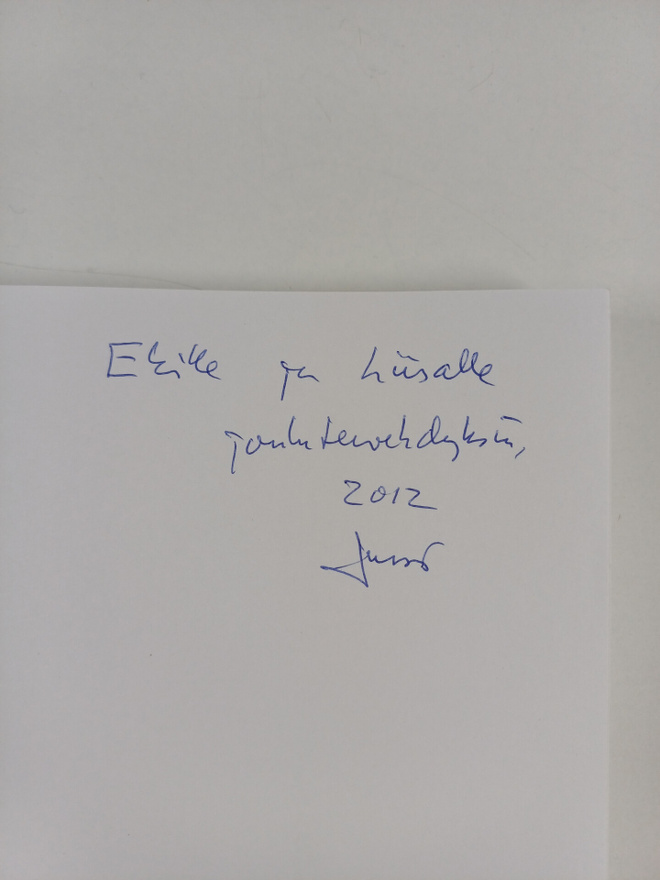 Ekille ja Liisalle
joulutervehdyksin,
2012
Jussi